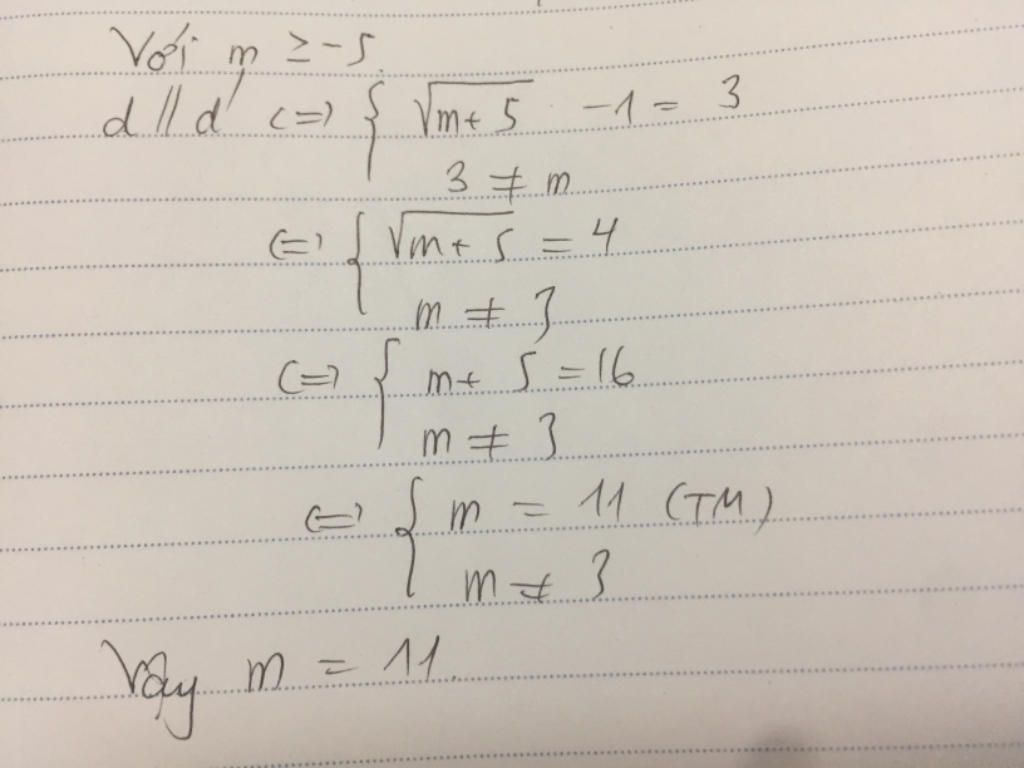 Với m ≥ -5.
d // d' <=> { √(m+5) - 1 = 3
3 ≠ m
<=> { √(m+5) = 4
m ≠ 3
<=> { m+ 5 = 16
m ≠ 3
<=> { m = 11 (TM)
m ≠ 3
Vậy m = 11.